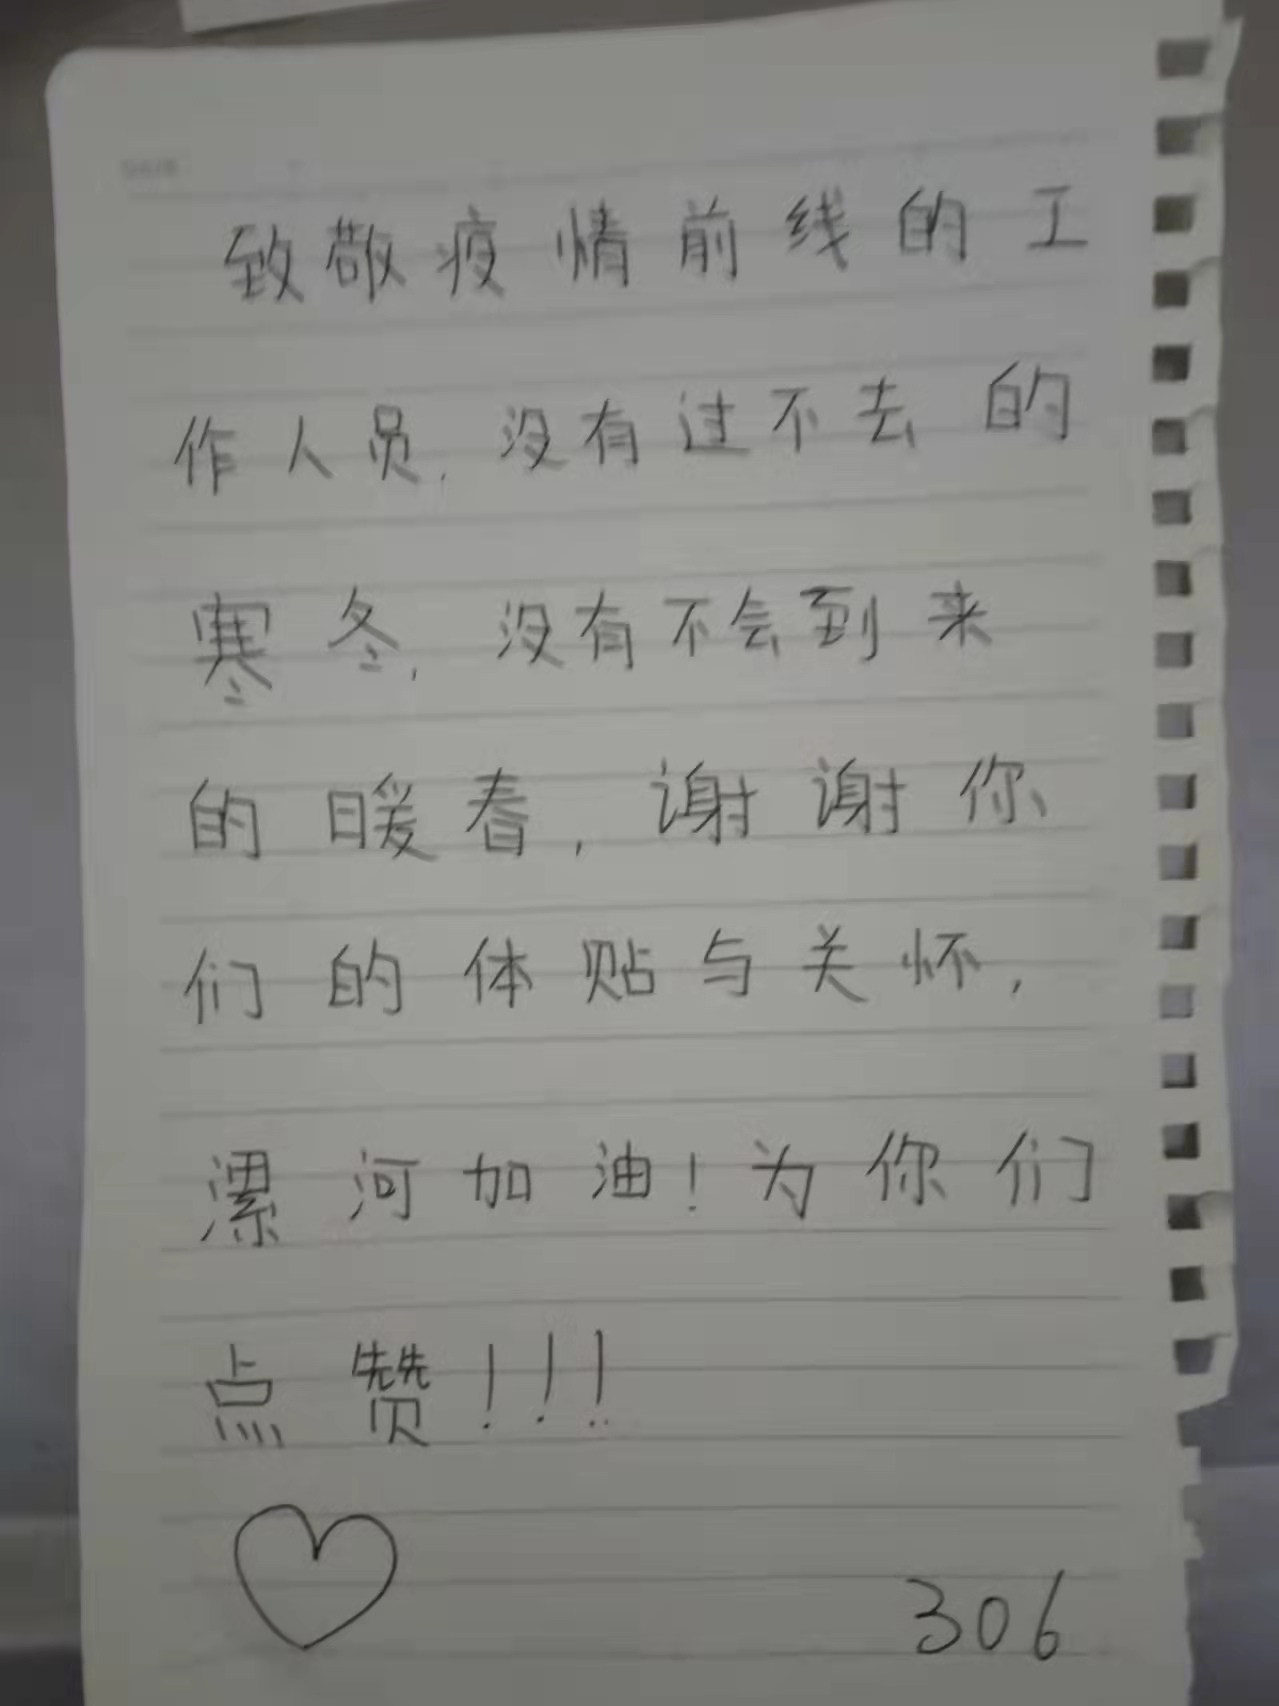 致敬疫情前线的工
作人员,没有过不去的
寒冬,没有不会到来
的暖春,谢谢你
们的体贴与关怀,
漯河加油!为你们
点赞!!!
306